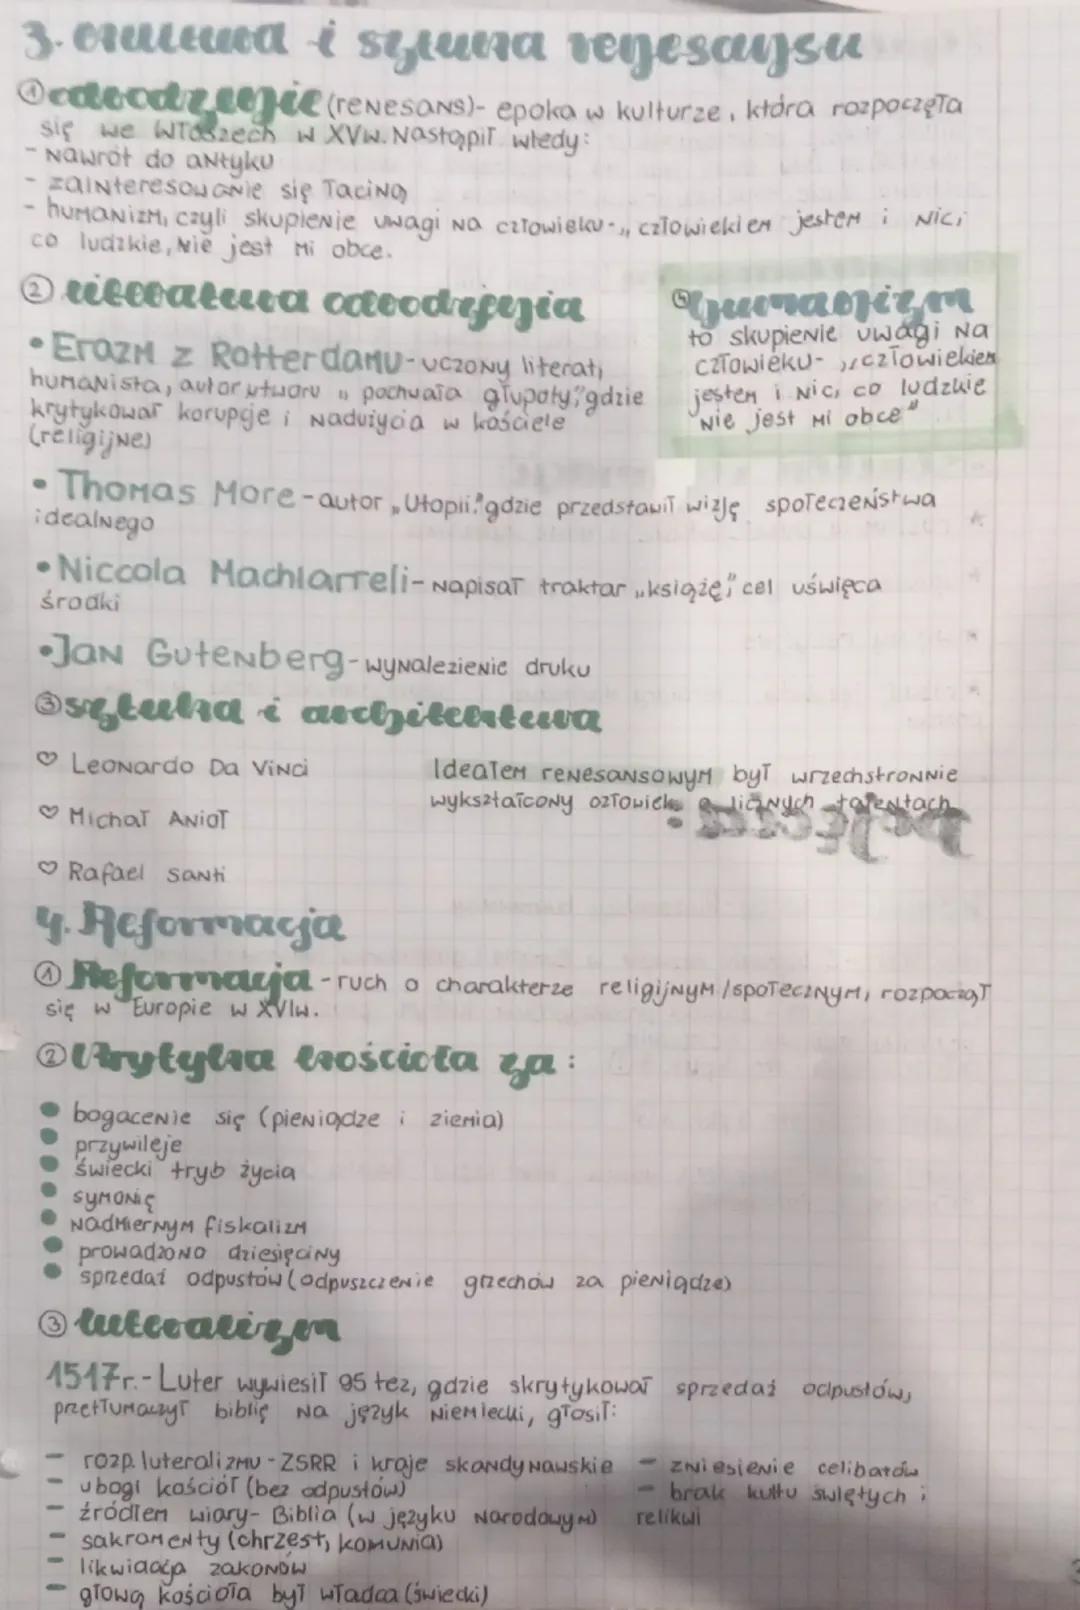 3. kultura i sztuka renesansu
① odrodzenie (renesans)- epoka w kulturze, która rozpoczęła
się we Włoszech w XVw. Nastąpił wtedy:
- Nawrót do antyku
- zainteresowanie się łaciną
- humanizm, czyli skupienie uwagi na człowieku-,, człowiekiem jestem i nic,
co ludzkie, nie jest mi obce.
② literatura odrodzenia
• Erazm z Rotterdamu- uczony literat,
humanista, autor utworu ,, pochwała głupoty," gdzie
krytykował korupcje i nadużycia w kościele
(religijne)
④ Humanizm
to skupienie uwagi na
człowieku- ,,człowiekiem
jestem i nic, co ludzkie
nie jest mi obce"
• Thomas More-autor ,,Utopii." gdzie przedstawił wizję społeczeństwa
idealnego
• Niccola Machiarreli- napisał traktar ,,książę," cel uświęca
środki
• Jan Gutenberg- wynalezienie druku
③ sztuka i architektura
♡ Leonardo Da Vinci
♡ Michał Anioł
♡ Rafael Santi
Ideałem renesansowym był wrzechstronnie
wykształcony człowiek o licznych talentach
4. Reformacja
① Reformacja - ruch o charakterze religijnym /społecznym, rozpoczął
się w Europie w XVIw.
② Krytyka kościoła za:
• bogacenie się (pieniądze i ziemia)
• przywileje
• świecki tryb życia
• symonię
• nadmiernym fiskalizm
• prowadzono dziesięciny
• sprzedaż odpustów (odpuszczenie grzechów za pieniądze)
③ luteralizm
1517r.- Luter wywiesił 95 tez, gdzie skrytykował sprzedaż odpustów,
przetłumaczył biblię na język niemiecki, głosił:
- rozp. luteralizmu - ZSRR i kraje skandynawskie
- ubogi kościół (bez odpustów)
- źródłem wiary- Biblia (w języku narodowym)
- sakramenty (chrzest, komunia)
- likwidacja zakonów
- głową kościoła był władca (świecki)
- zniesienie celibatów
- brak kultu świętych i
relikwi